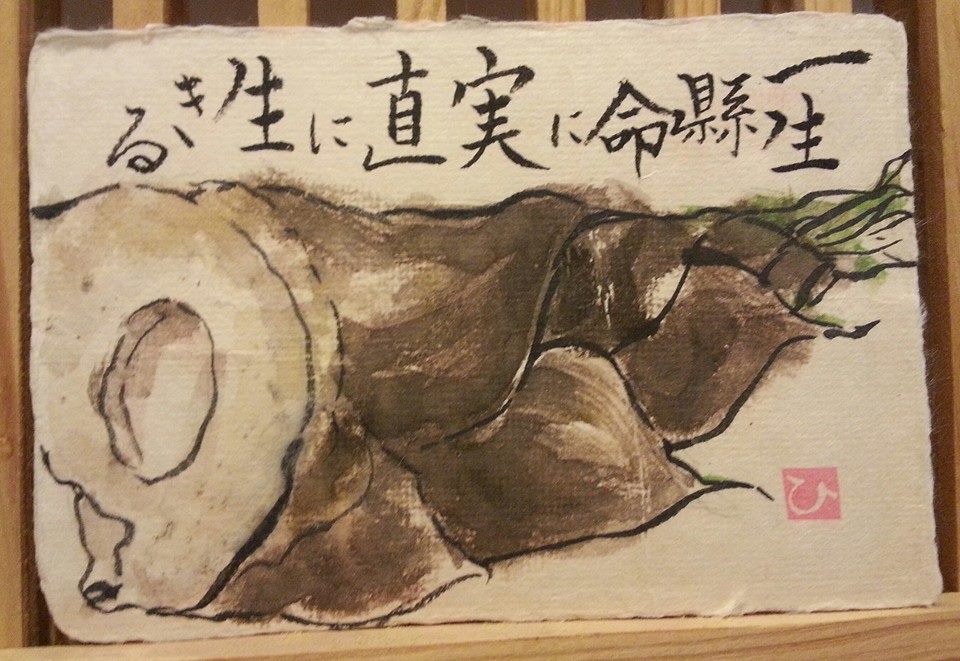 一生縣命に実直に生きる
ひ